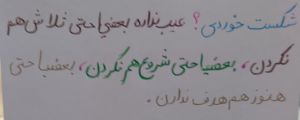 شکست خوردی؟ عیب نداره بعضیا حتی تلاش هم
نکردن، بعضیا حتی شروع هم نکردن، بعضیا حتی
هنوز هم هدف ندارن.